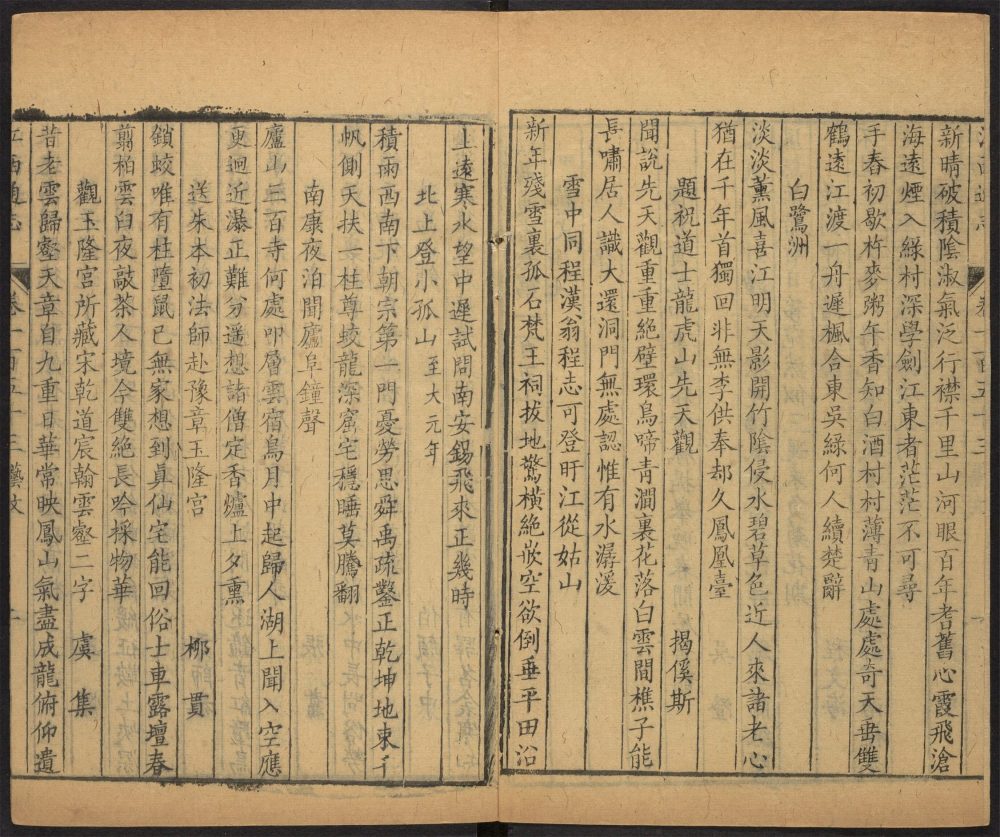 新晴破積陰淑氣泛行襟千里山河眼百年耆舊心霞飛滄
海遠煙入綠村深學劍江東者茫茫不可尋
手春初歇杵麥粥午香知白酒村村薄青山處處奇天垂雙
鶴遠江渡一舟遲楓合東吳綠何人續楚辭
白鷺洲
淡淡薰風喜江明天影開竹陰侵水碧草色近人來諸老心
猶在千年首獨回非無李供奉却久鳳凰臺
題祝道士龍虎山先天觀 揭傒斯
聞說先天觀重重絕壁環鳥啼青澗裏花落白雲間樵子能
長嘯居人識大還洞門無處認惟有水潺湲
雪中同程漢翁程志可登盱江從姑山
新年殘雪裏孤石梵王祠拔地驚橫絕嵌空欲倒垂平田沿
上遠寒水望中遲試問南安錫飛來正幾時
北上登小孤山 至大元年
積雨西南下朝宗第一門憂勞思舜禹疏鑿正乾坤地東千
帆側天扶一柱尊蛟龍深窟宅穩睡莫騰翻
南康夜泊聞廬阜鐘聲
廬山三百寺何處叩層雲宿鳥月中起歸人湖上聞入空應
更迥近瀑正難分遥想諸僧定香爐上夕熏
送朱本初法師赴豫章玉隆宮 栁貫
鎖蛟唯有柱墮鼠已無家想到真仙宅能回俗士車露壇春
翦柏雲臼夜敲茶人境今雙絕長吟採物華
觀玉隆宮所藏宋乾道宸翰雲壑二字 虞集
昔老雲歸壑天章自九重日華常映鳳山氣盡成龍俯仰遺
江西通志 卷一百五十三 藝文